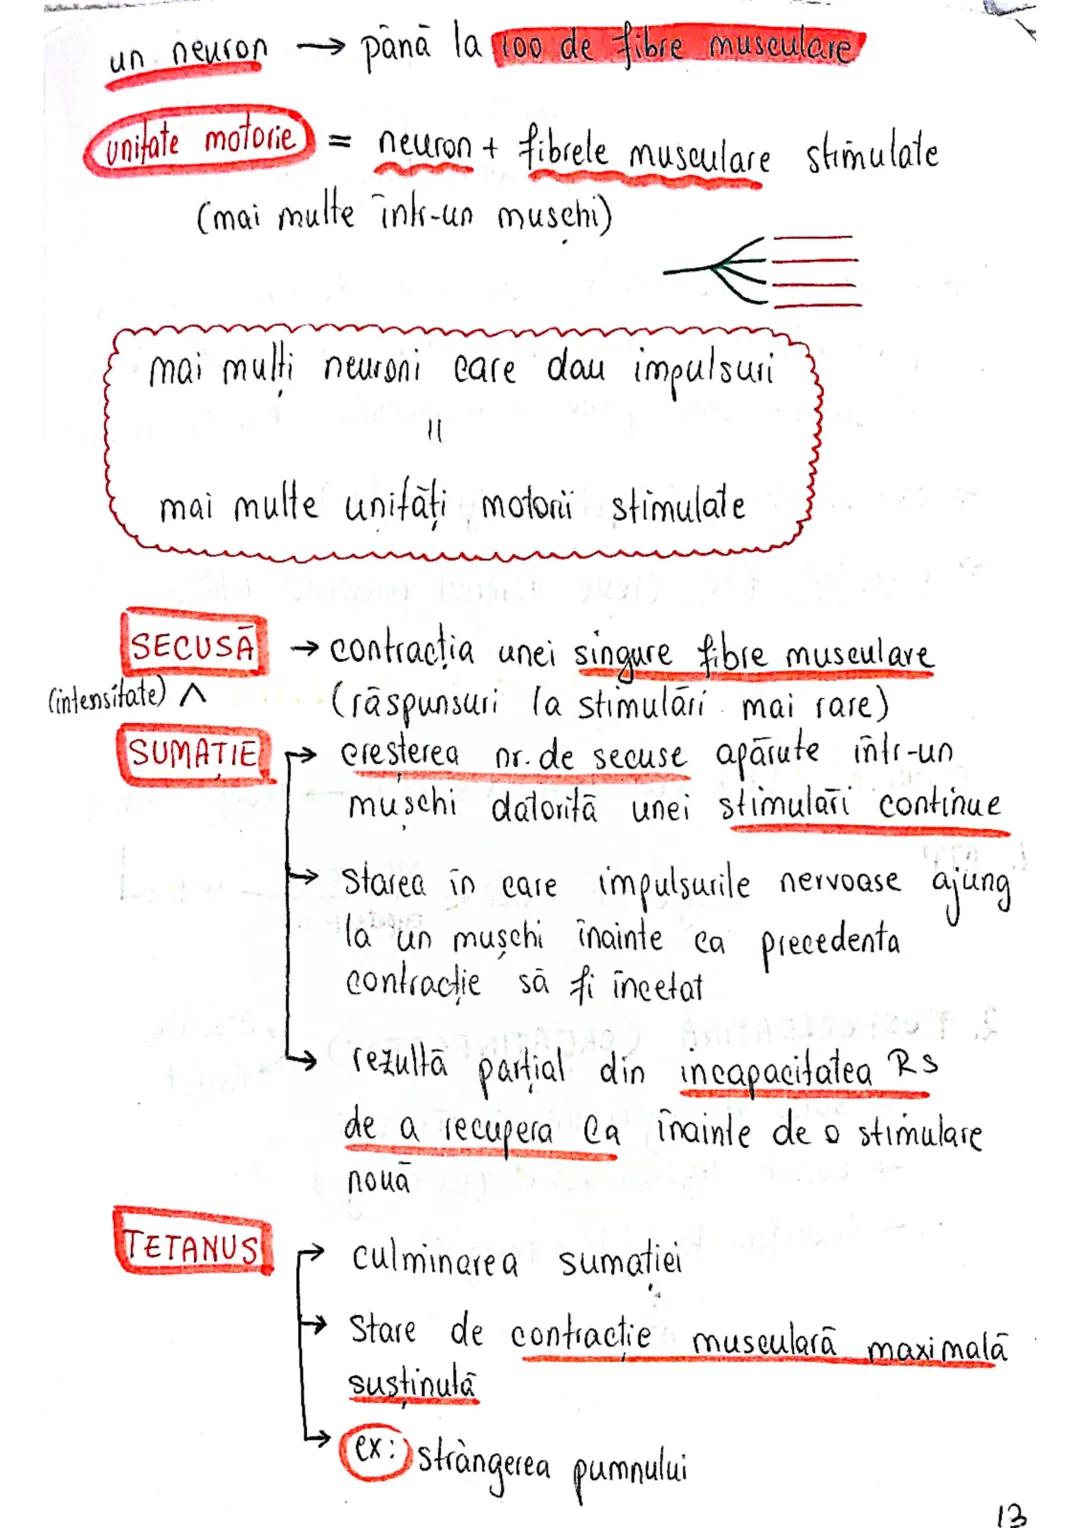 un neuron → până la 100 de fibre musculare
unitate motorie = neuron + fibrele musculare stimulate
(mai multe într-un muschi)
mai mulți neuroni care dau impulsuri
=
mai multe unități motorii stimulate
SECUSĂ → contracția unei singure fibre musculare
(intensitate) ^ (răspunsuri la stimulări mai rare)
SUMAȚIE → creșterea nr. de secuse apărute într-un
mușchi datorită unei stimulări continue
→ starea în care impulsurile nervoase ajung
la un mușchi înainte ca precedenta
contracție să fi încetat
→ rezultă parțial din incapacitatea RS
de a recupera Ca înainte de o stimulare
nouă
TETANUS → culminarea sumației
→ Stare de contracție musculară maximală
susținută
→ ex: strângerea pumnului
13